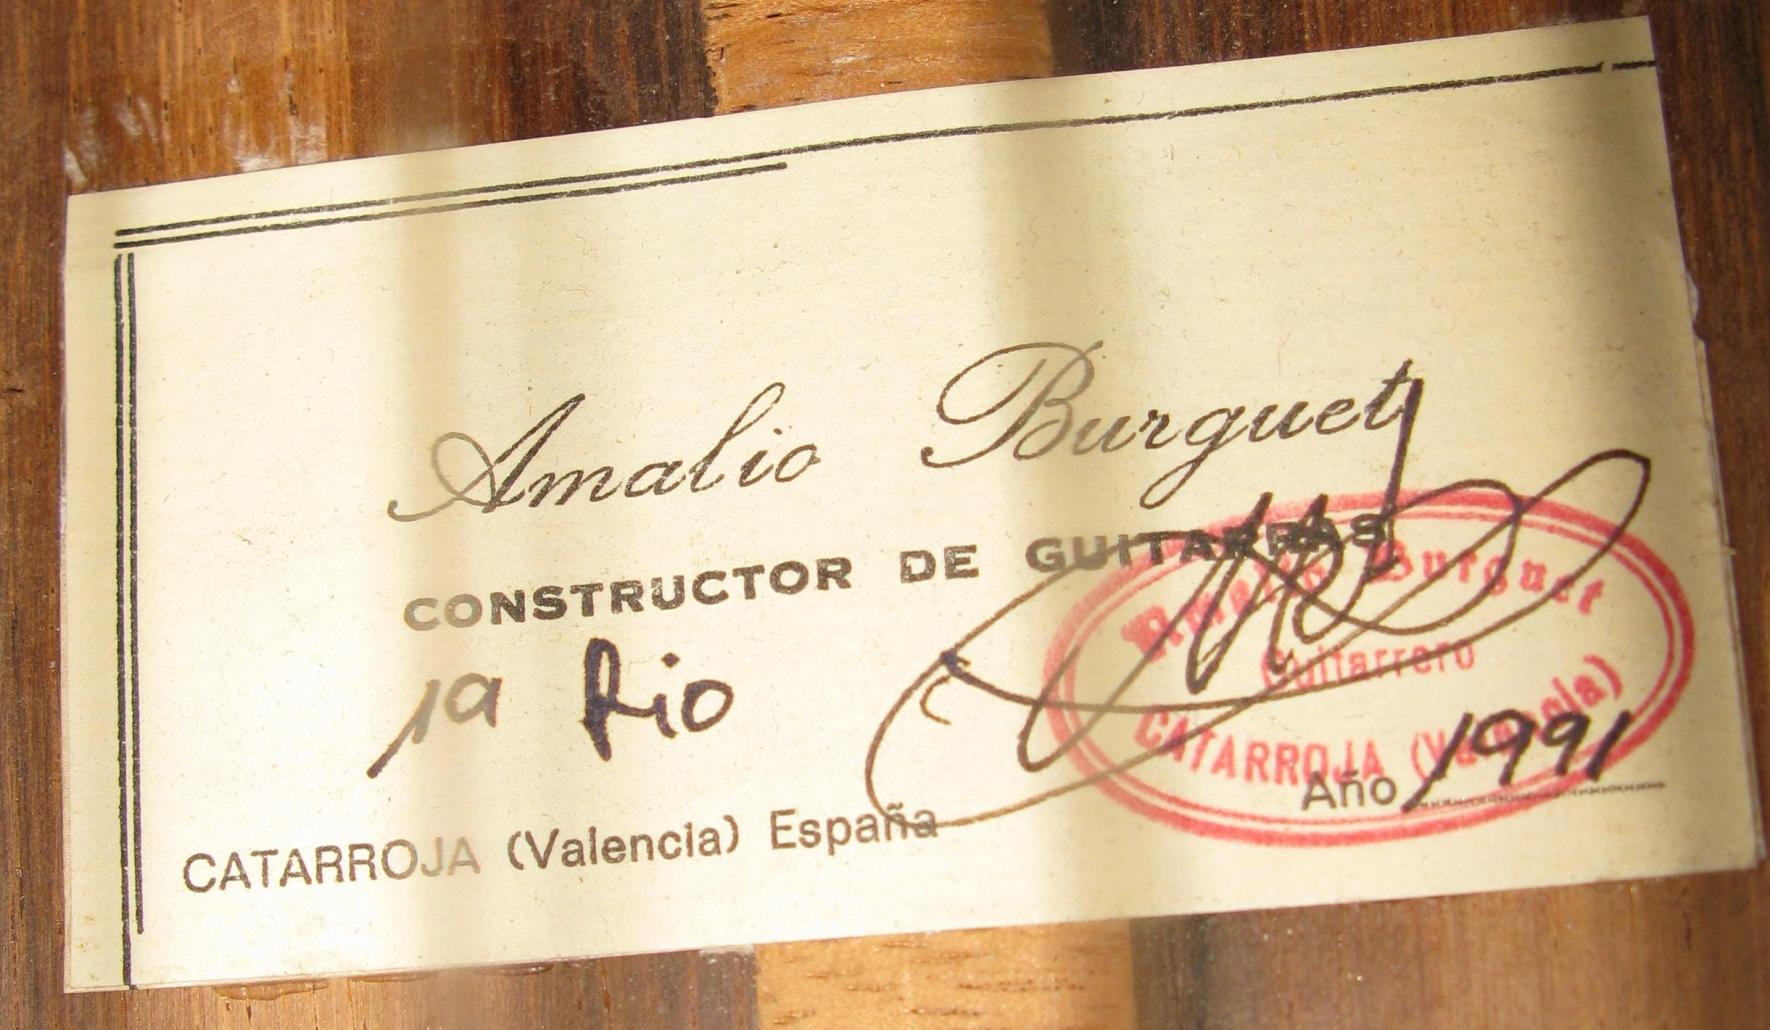 Amalio Burguet
CONSTRUCTOR DE GUITARRAS
1a Rio
Amalio Burguet
Guitarrero
CATARROJA (Valencia)
Año 1991
CATARROJA (Valencia) España